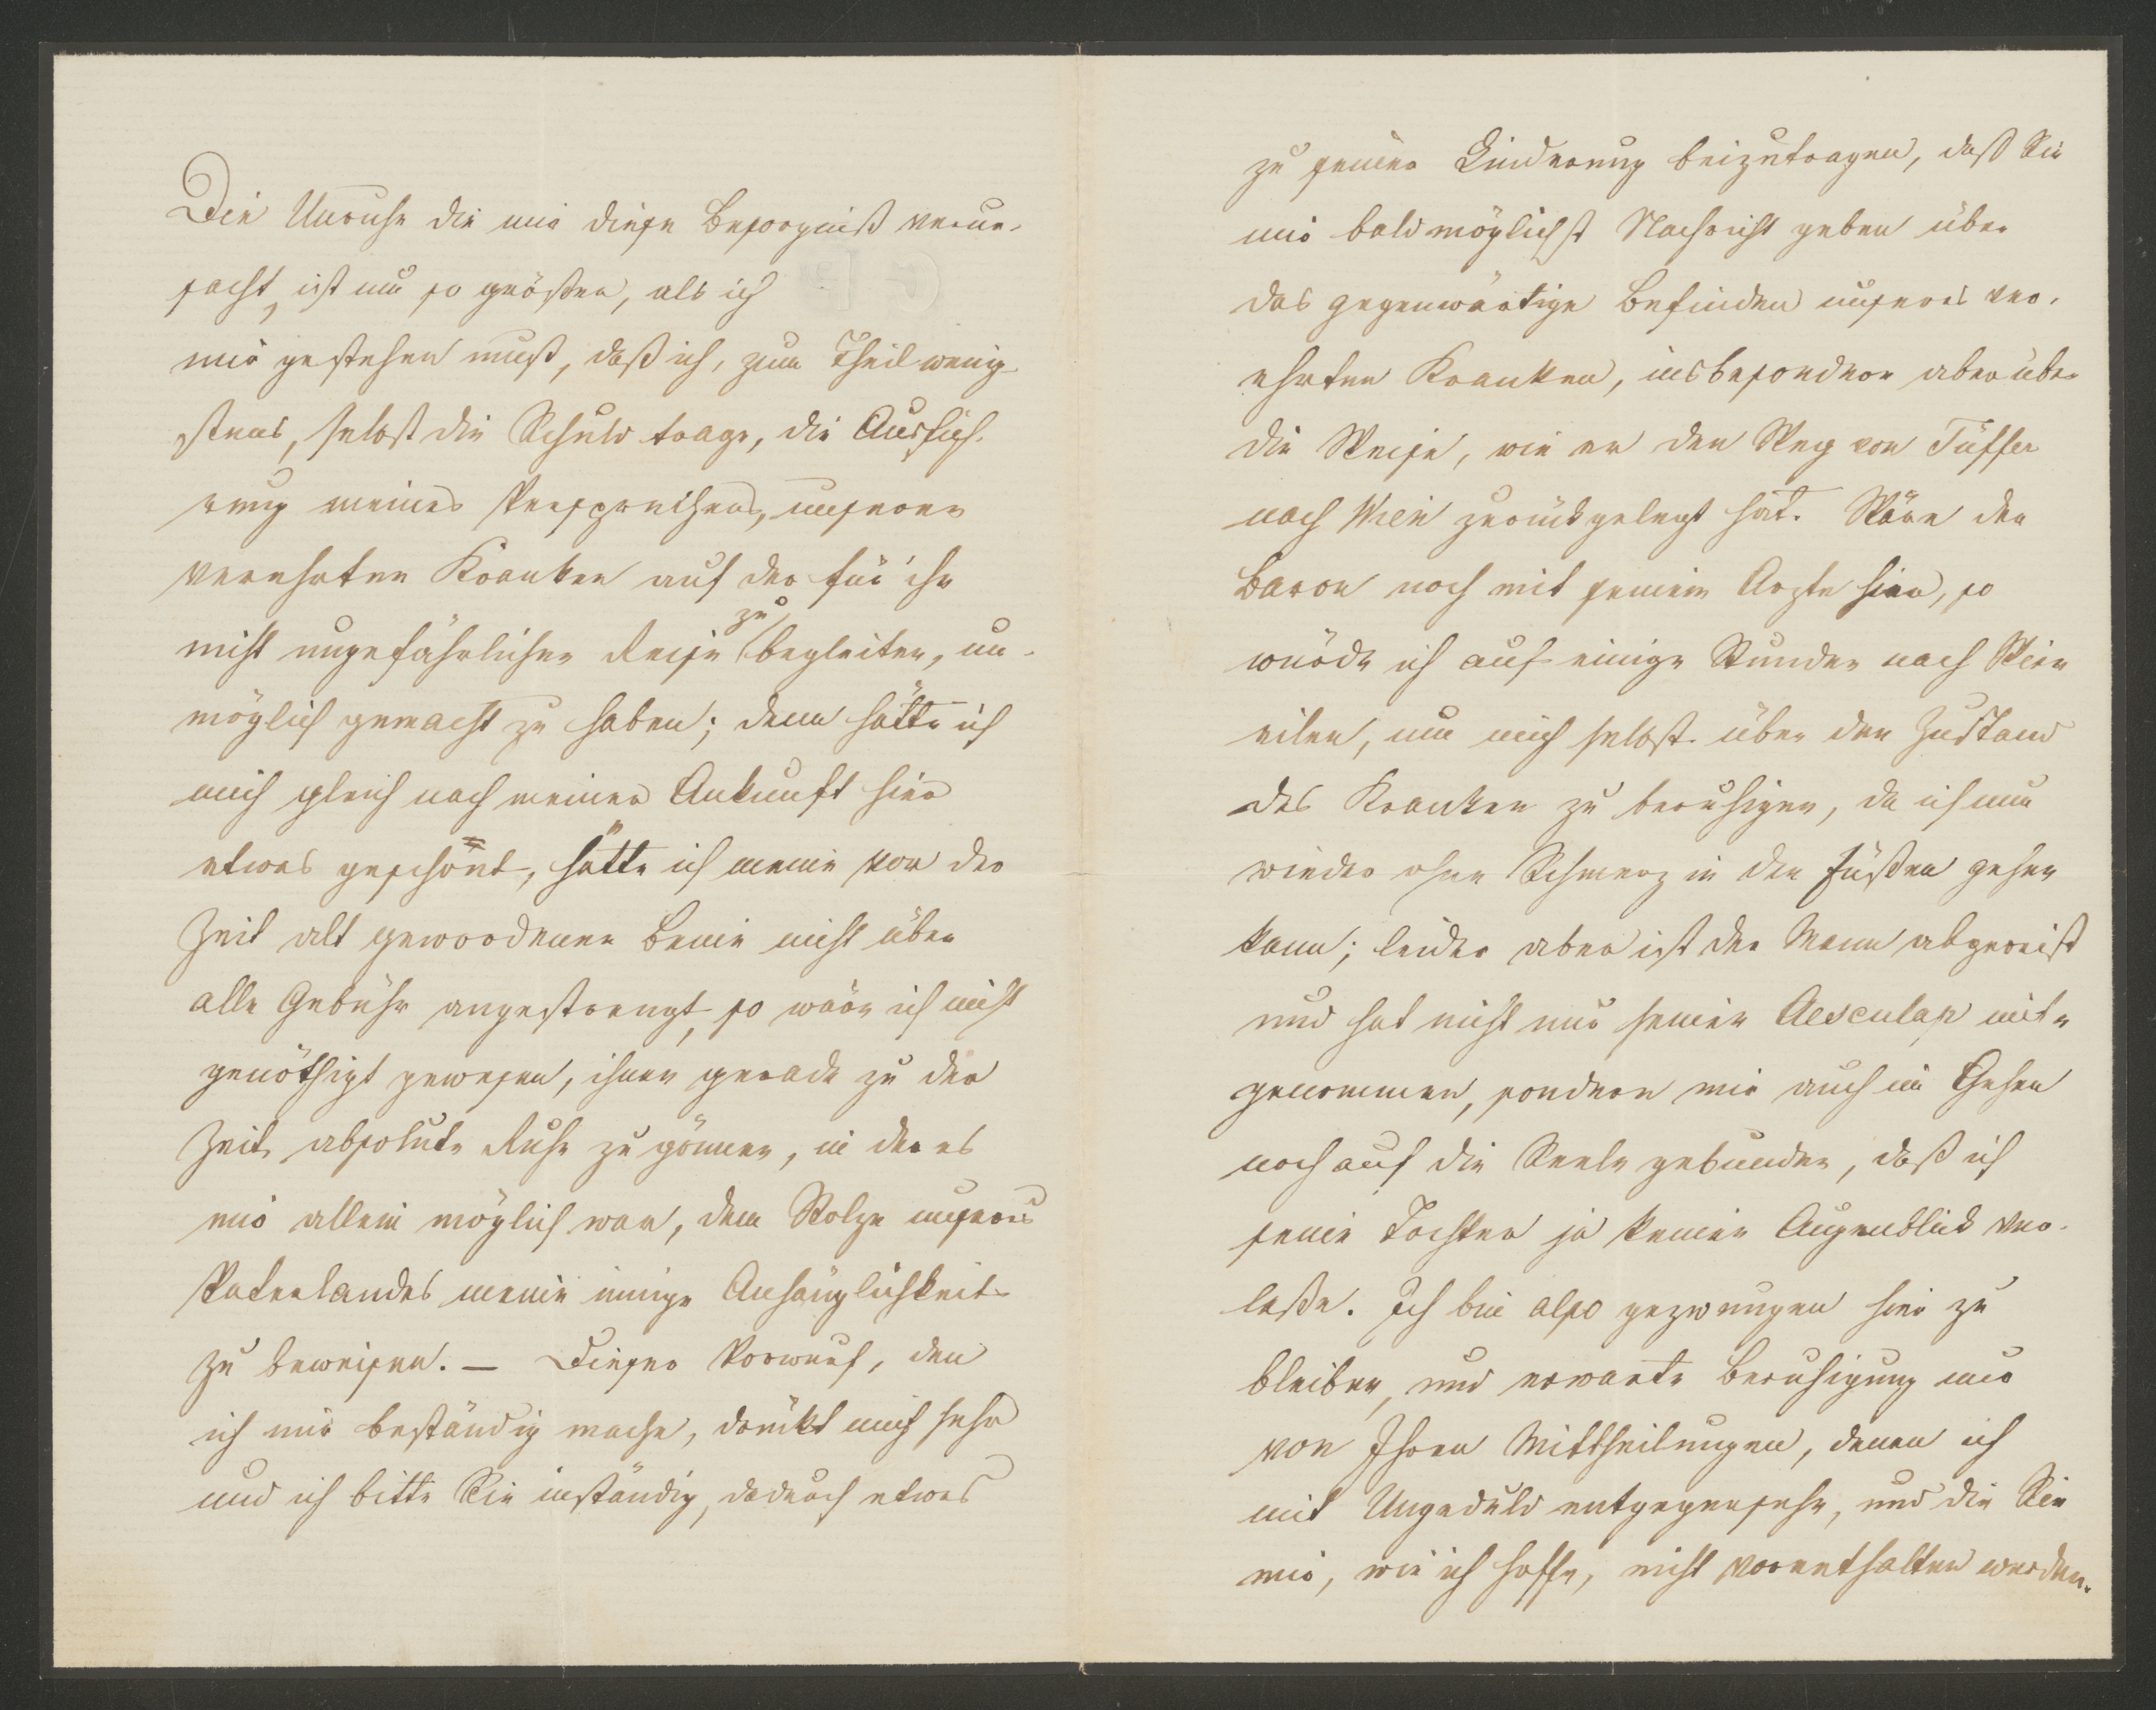 Die Unruhe die mir diese Besorgniß verur-
sacht, ist um so größer, als ich
mir gestehen muß, daß ich, zum Theil wenig-
stens, selbst die Schuld trage, die Ausfüh-
rung meines Versprechens, unseren
verehrten Kranken auf der für ihn
nicht ungefährlichen Reise zu begleiten, un-
möglich gemacht zu haben; denn hätte ich
mich gleich nach meiner Ankunft hier
etwas geschont, hätte ich meine von der
Zeit alt gewordenen Beine nicht über
alle Gebühr angestrengt, so wäre ich nicht
genöthigt gewesen, ihnen gerade zu der
Zeit absolute Ruhe zu gönnen, in der es
mir allein möglich war, dem Stolze unseres
Vaterlandes meine innige Anhänglichkeit
zu beweisen. — Dieser Vorwurf, den
ich mir beständig mache, drückt mich sehr
und ich bitte Sie inständig, dadurch etwas
zu seiner Linderung beizutragen, daß Sie
mir baldmöglichst Nachricht geben über
das gegenwärtige Befinden unseres ver-
ehrten Kranken, insbesondere aber über
die Weise, wie er den Weg von Tüffer
nach Wien zurückgelegt hat. Wäre der
Baron noch mit seinem Arzte hier, so
würde ich auf einige Stunden nach Wien
eilen, um mich selbst über den Zustand
des Kranken zu beruhigen, da ich nun
wieder ohne Schmerz in den Füßen gehen
kann; leider aber ist der Mann abgereist
und hat nicht nur seinen Aesculap mit-
genommen, sondern mir auch im Gehen
noch auf die Seele gebunden, daß ich
seine Tochter ja keinen Augenblick ver-
lasse. Ich bin also gezwungen hier zu
bleiben, und erwarte Beruhigung nur
von Ihren Mittheilungen, denen ich
mit Ungeduld entgegensehe, und die Sie
mir, wie ich hoffe, nicht vorenthalten werden.